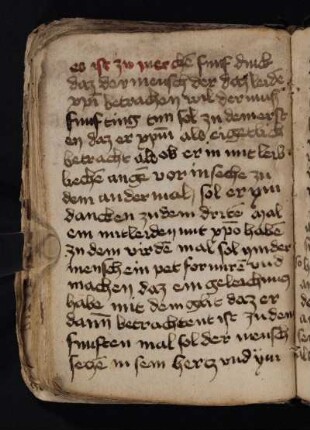 es ist zu mercken funf dinck
daz der mensch der daz leiden
xpi betrachen wil der mus
funf ting tun sol zu dem erst
en daz er xpm als eigetlich
betracht als ob er in mit leib
lichen auge vor in seche zu
dem ander mal sol er ym
dancken zu dem drite mal
ein mitleiden mit xpo habe
zu dem virde mal sol yn der
mensch ein pet formire vnd
machen daz ein geleichung
habe mit dem gut daz er
dann betrachtent ist zu dem
funften mal sol der mensch
seche in sein hercz vnd ym